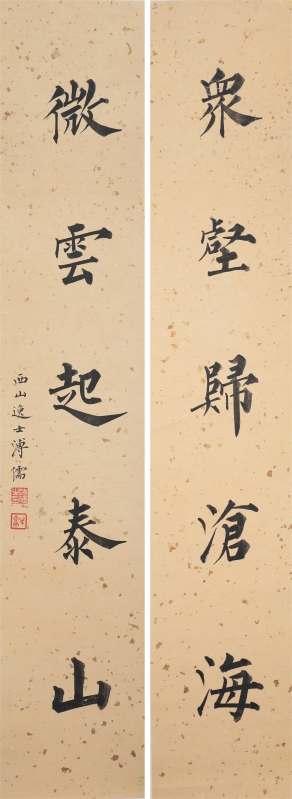 衆壑歸滄海
微雲起泰山
西山逸士溥儒